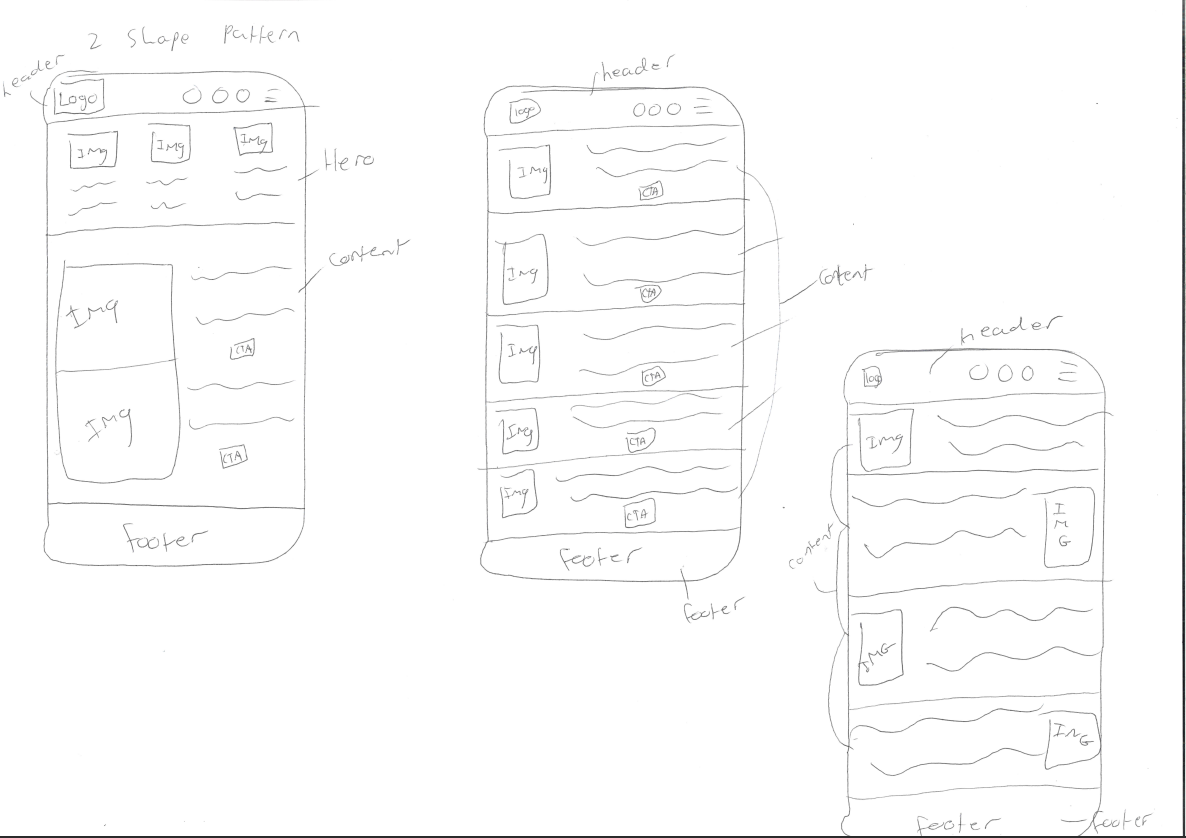 2 Shape Pattern
header
Logo
Img Img Img
Hero
Content
Img
CTA
Img
CTA
footer
header
logo
Img
CTA
Img
CTA
Img
CTA
Img
CTA
Img
CTA
Cotent
footer
footer
header
logo
Img
IMG
content
IMG
IMG
footer
footer